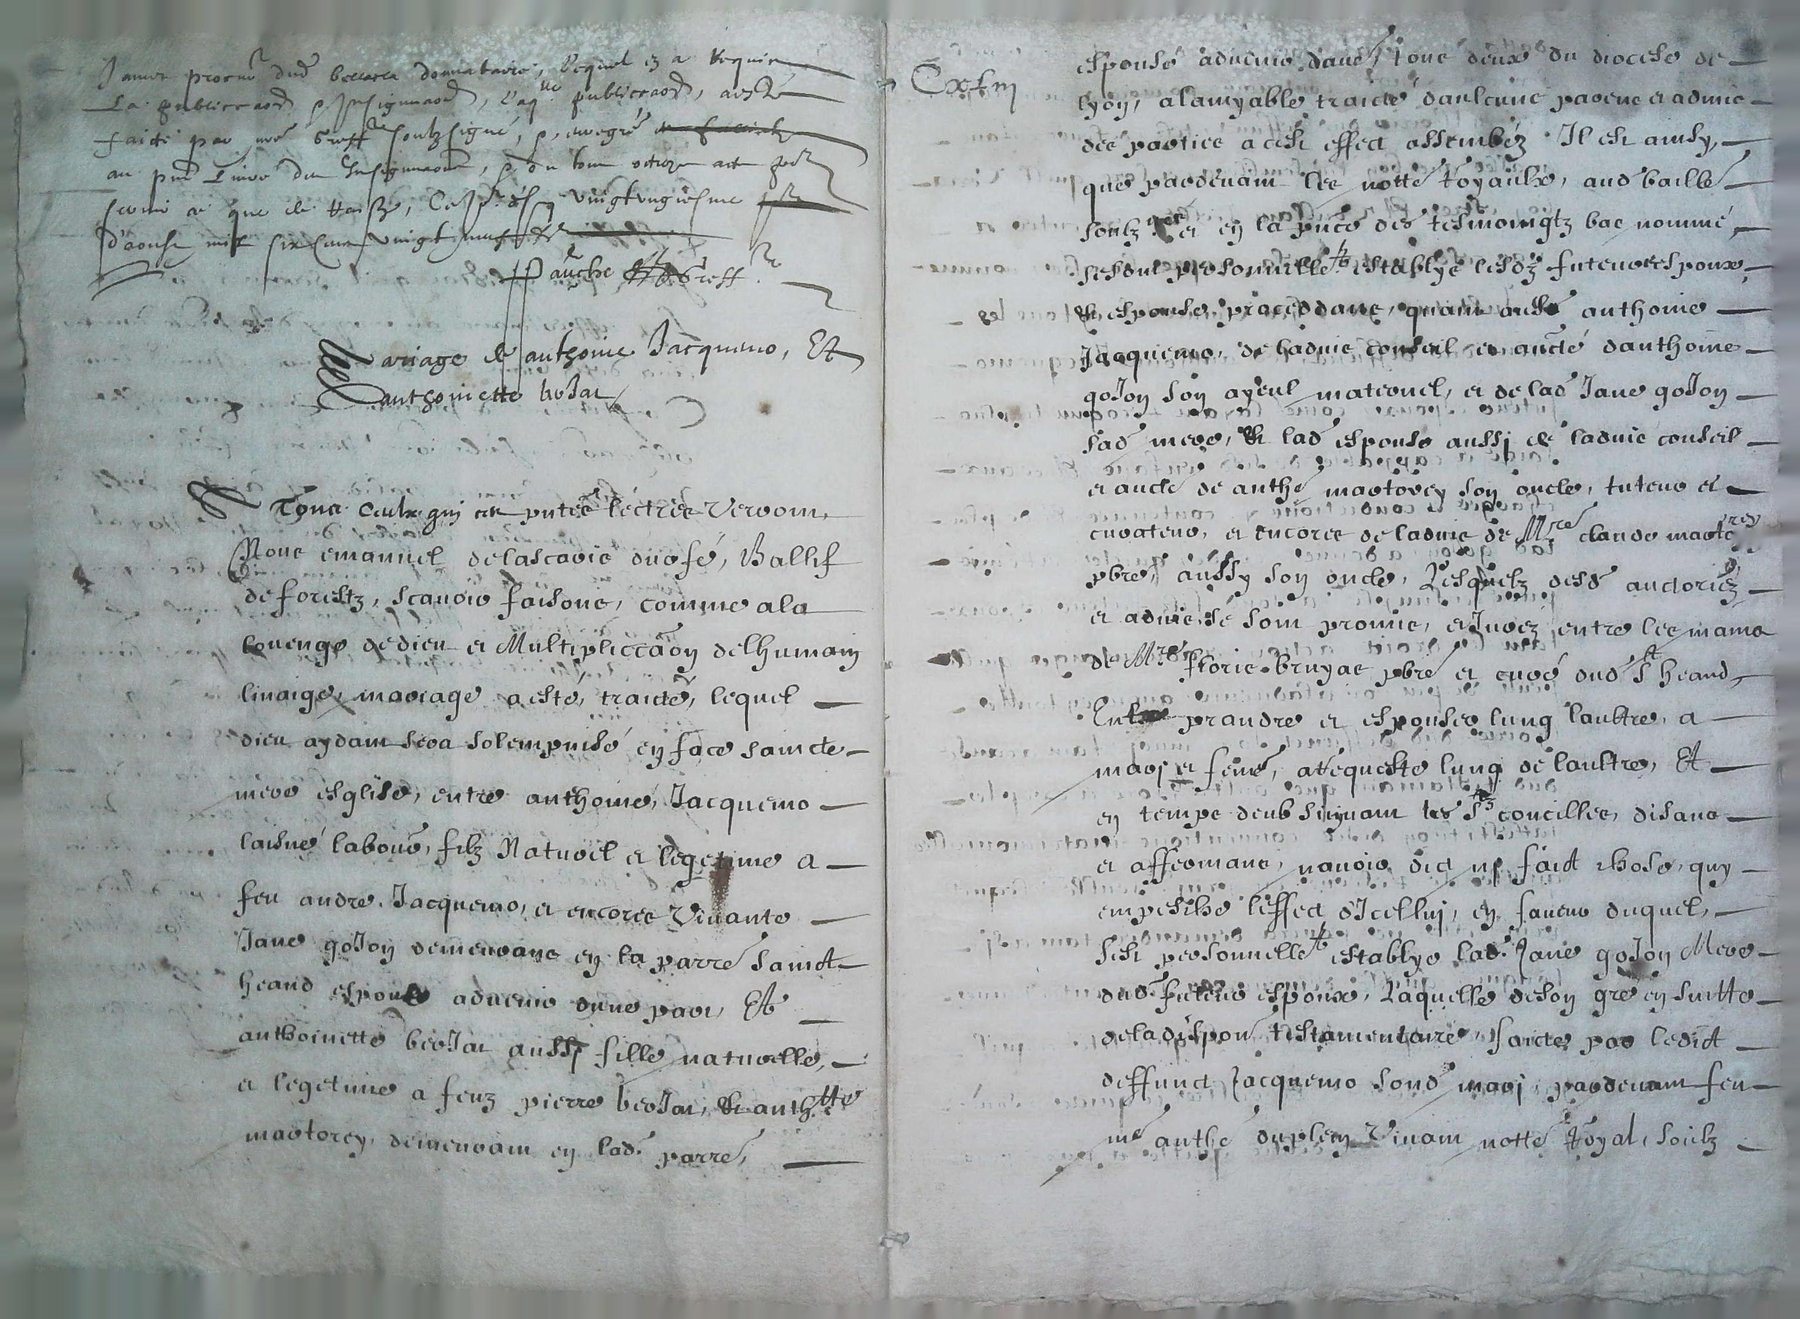 Janvr procur dud donnataire, lequel en a requis
la publication &
faicte par greff soubzsigné,
au pnt Livre des Insignuaons,
vingtungiesme
d'aoust mil six cens vingt neuf
greff
Mariage de anthoine Jacquemo, Et
anthoinette berJat
A Tous Ceulx qui ces pntes lectres Verront,
Nous emanuel delascaris durfé, Ballif
de forestz, scavoir faisons, comme a la
louenge de dieu et Multiplicaon de lhumain
linaige, mariage a esté, traicté, lequel
dieu aydant sera solempnisé en face saincte
mere esglise, entre anthoine, Jacquemo
laisné labour, filz Naturel et legetime a
feu andre Jacquemo, et encores Vivante
Jane goJon demeurans en la parre sainct
heand espoux advenir dune part, Et
anthoinette berJat aussi fille naturelle,
et legetime a feuz pierre berJat, & anthtte
martorey, demeurant en lad parre,
Cxfm
espouse advenir dautre, tous deux du diocese de
lyon, a lamyable traicté daulcuns parens et amis
des parties a cest effect assembéz Il est ainsy,
que pardevant les nottes royaulx, aud baille
soubz et en la pnce des tesmoingtz bas nommé,
se sont personnellemt establys lesdz futeurs espoux,
& espouse, proceddans, quant aud anthoine
Jacquemo, de ladvis conseil et aucté danthoine
goJon son ayeul maternel, et de lad Jane goJon
sad mere, & lad espouse aussi de ladvis conseil
et aucté de anthe martorey son oncle, tuteur et
curateur, et encores de ladvis de Mre claude martorey
pbre, aussy son oncle, Lesquelz desd auctoriez
et advis, se sont promis, et Jurez, entre les mains
de Mre floris bruyas pbre et curé dud St heand,
prandre et espouser lung laultre, a
mari et feme, a requeste lung de laultre, Et
en temps deub suyvant les Sts concilles, disans
et affermans, navoir dict ny faict chose, quy
empesche leffect dIcelluj, en faveur duquel,
sest personnellemt establye lad. Jane goJon Mere
dud futeur espoux, Laquelle de son gré en suitte
de la dispon testamentaire, faicte par ledict
deffunct Jacquemo sond mari, pardevant feu
me anthe duplen Vivant notte royal, soubz